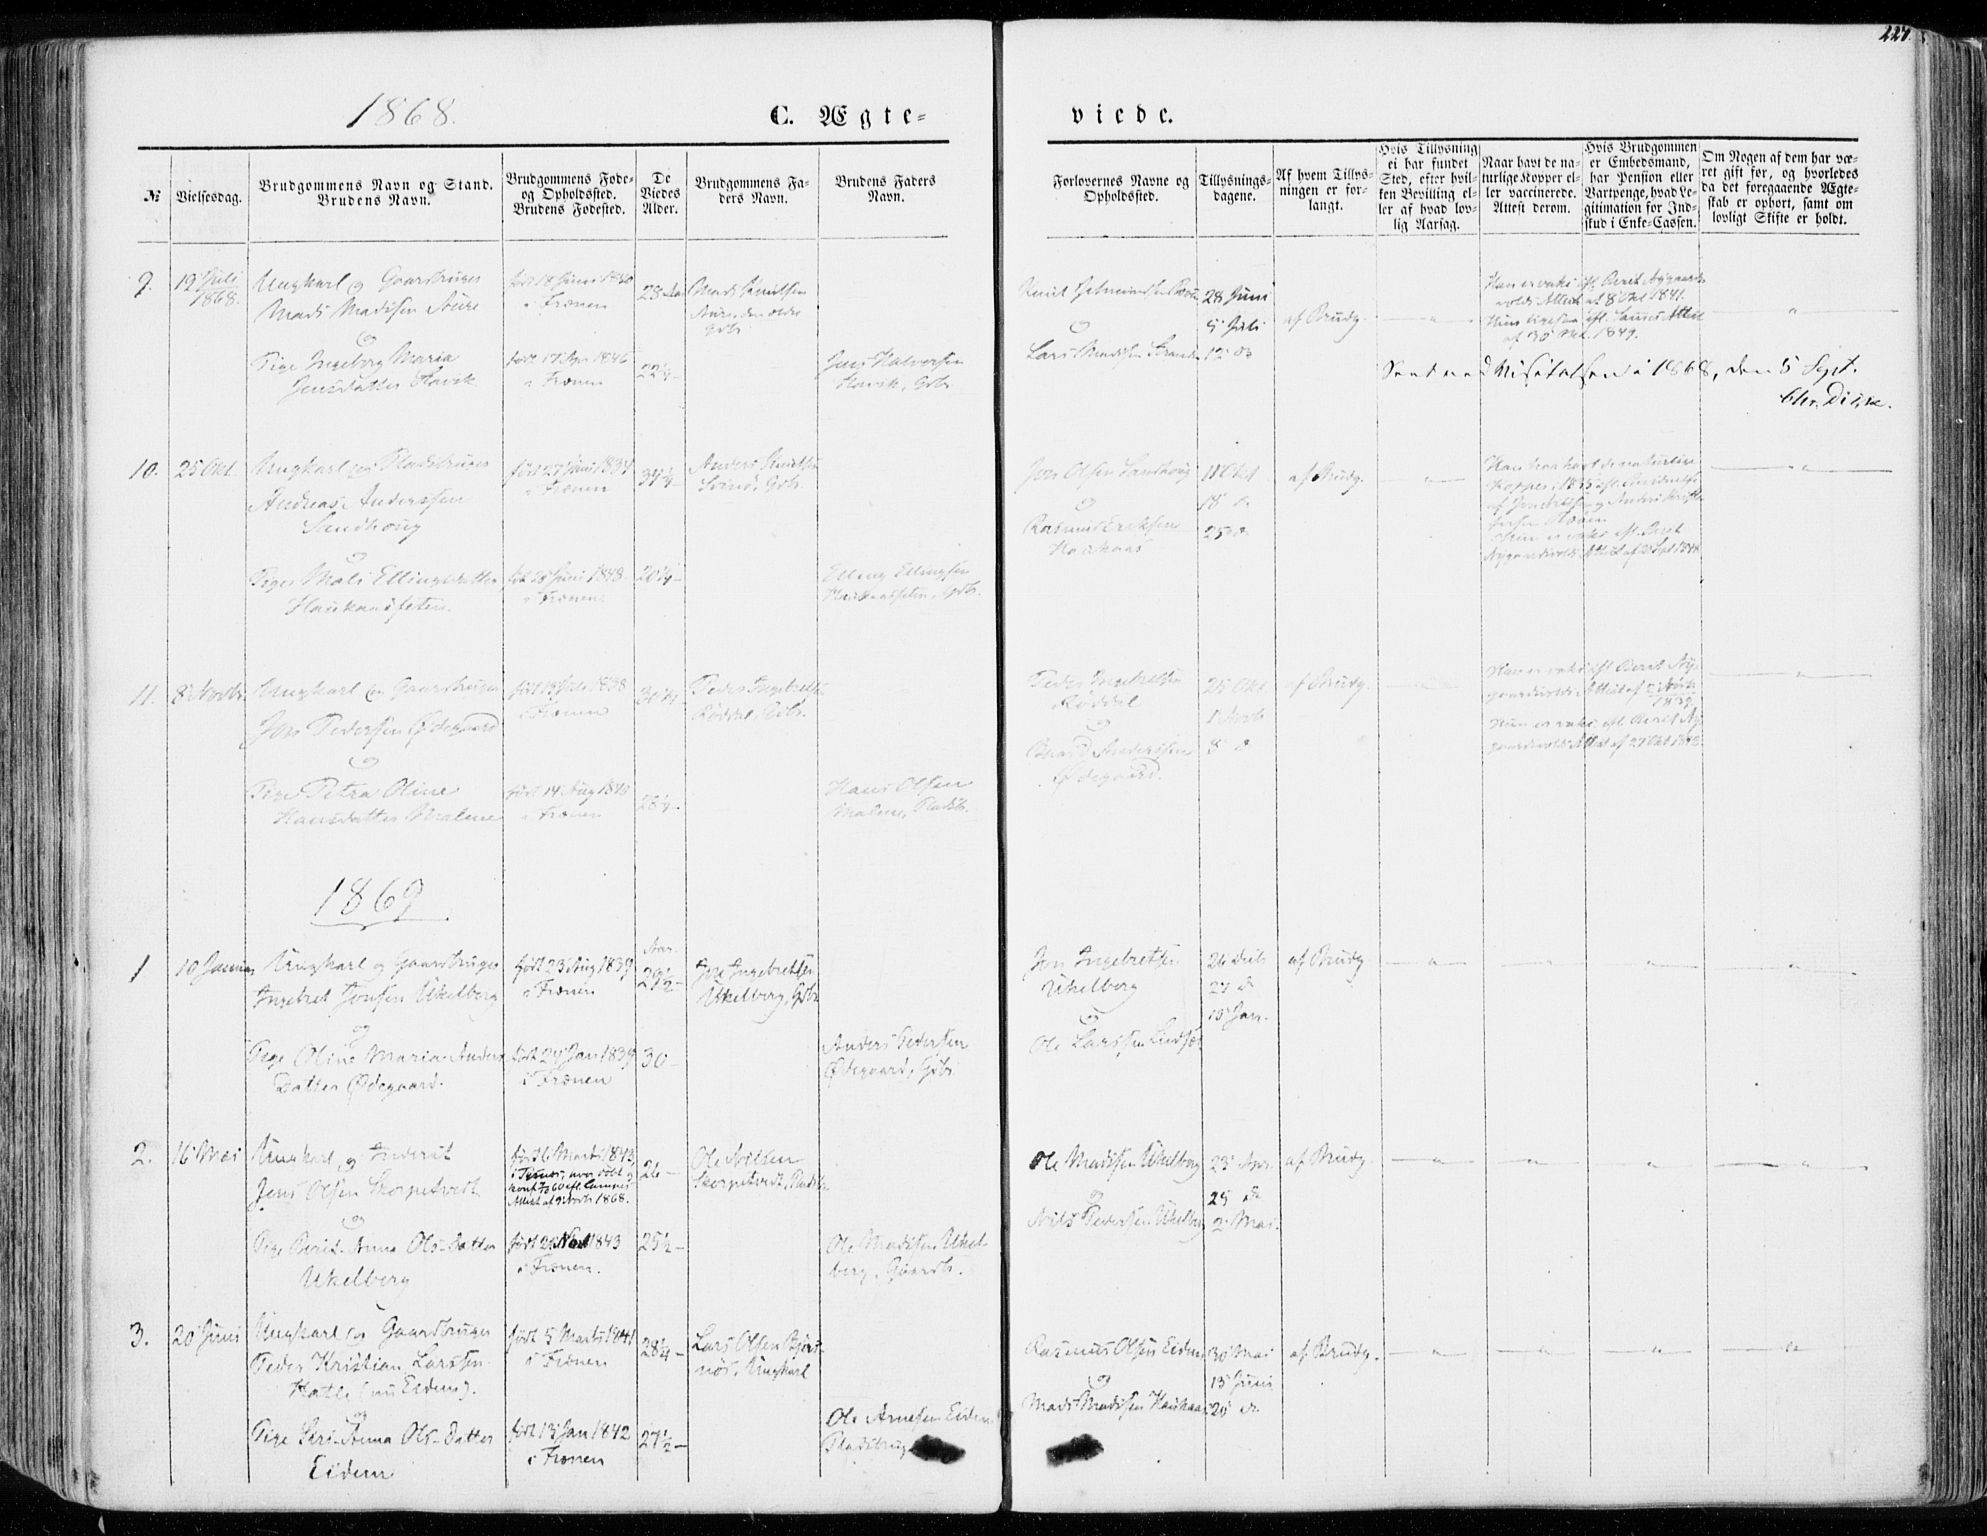 227.
1868.
C. Ægte-
viede.
№
Vielsesdag.
Brudgommens Navn og Stand.
Brudens Navn.
Brudgommens Føde-
og Opholdssted.
Brudens Fødested.
De
Viedes
Alder.
Brudgommens Fa-
ders Navn.
Brudens Faders
Navn.
Forlovernes Navne og
Opholdssted.
Tillysnings-
dagene.
Af hvem Tillys-
ningen er for-
langt.
Hvis Tillysning
ei har fundet
Sted, efter hvil-
ken Bevilling el-
ler af hvad lov-
lig Aarsag.
Naar havt de na-
turlige Kopper el-
ler vaccinerede.
Attest derom.
Hvis Brudgommen
er Embedsmand,
har Pension eller
Vartpenge, hvad Le-
gitimation for Ind-
skud i Enke-Cassen.
Om Nogen af dem har væ-
ret gift før, og hvorledes
da det foregaaende Ægte-
skab er ophørt, samt om
lovligt Skifte er holdt.
9.
19 Juli
1868.
Ungkarl og Gaardbruger
Mads Madsen Aure
og
Pige Ingeborg Maria
Jensdatter Havik
født 18 Juni 1840
i Frænen
født 17 Apr 1846
i Frænen
28 Aar
22 1/4 -
Mads Knudsen
Aure, den ældre
Gdb.
Jens Halvorsen
Havik, Gdb.
Knud
og
Lars Madsen Strande
28 Juni
5 Juli
12 do
af Brudg.
Han er vaks. efl. Berit Nygaards-
volds Attest af 8 Okt 1841.
Hun ligesaa efl. Sammes Attest
af 30 1849.
Seet ved Visitatsen i 1868, den 5 Sept.
Chr.
10.
25 Okt.
Ungkarl og Pladsbruger
Andreas Anderssen
Sandhoug
og
Pige Mali Ellingsdatter
Haukaassæten.
født 27 Juni 1834
i Frænen
født 28 Juni 1848
i Frænen
34 1/4
20 1/4 -
Anders Knudsen
Gdb.
Elling Ellingsen
Haukaassæten, Gdb.
Jon Olsen Sandhoug
og
Rasmus Eriksen
Haukaas
11 Okt
18 do
25 do
af Brudg.
Han har havt de naturlige
Kopper, 1835 efl.
Hun er vaks. efl. Berit
Nygaardsvolds Attest af
11.
8 Novbr.
Ungkarl og Gaardbruger
Jon Pedersen Ødegaard
og
Pige Petra Oline
Hansdatter Malme
født 1838
i Frænen
født 14 Aug 1840
i Frænen
30 1/4
28 1/4 -
Peder Ingebretsen
Røddal, Gdb.
Hans Olsen
Malme, Pladsb.
Peder Ingebretsen
Røddal
og
Baard Anderssen
Ødegaard.
25 Okt
1 Novb
8 do
af Brudg.
Han er vaks. efl. Berit Ny-
gaardsvolds Attest af
1839.
Hun er vaks. efl. Berit Ny-
gaardsvolds Attest af 27 Okt
1869.
1
10 Januar
Ungkarl og Gaardbruger
Ingebret Jonsen Ukelberg
og
Pige Oline Maria Anders
Datter Ødegaard.
født 23 Aug 1839
i Frænen
født 24 Jan 1839
i Frænen
Aar.
29 1/2 -
30 -
Jon Ingebretsen
Ukelberg, Gdb.
Anders Pedersen
Ødegaard, Gdb.
Jon Ingebretsen
Ukelberg
og
Ole Larssen Lindset
26 Decb
27 do
10 Jan.
af Brudg
2.
16 Mai
Ungkarl og Inderst
Jens Olsen Skorpetvedt
og
Pige Berit-Anna Ols-Datter
Ukelberg
født 6 Marts 1843
Attest af 9 Novb 1868.
født 1843
i Frænen.
26 -
25 1/2 -
Ole Nilsen
Skorpetvedt, Pladsb.
Ole Madsen Ukel-
berg, Gaardb.
Ole Madsen Ukelberg
og
Nils Pedersen Ukelberg
23 Apr.
25 do
2 Mai.
af Brudg.
3.
20 Juni
Ungkarl og Gaardbruger
Peder Kristian Larssen
Hatle (nu Eidem).
og
Pige Siri-Anna Ols-Datter
Eidem
født 5 Marts 1841
i Frænen
født 13 Jan 1842
i Frænen
28 1/4 -
27 1/2 -
Lars Olsen Bjørs-
nøs, Ungkarl
Ole Arnesen Eidem
Pladsbruger
Rasmus Olsen Eidem
og
Mads Madsen Haukaas
30 Mai
13 Juni
20 do
af Brudg.